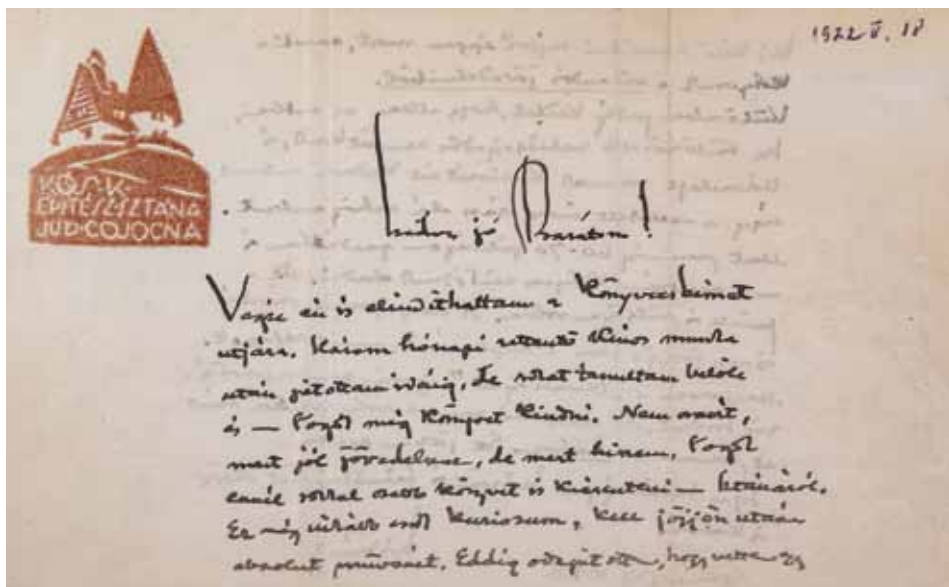 1922 V. 18
KÓS·K·
ÉPÍTÉSZ SZTANA
JUD·COJOCNA
jó Barátom!
Végre én is elindíthattam a könyvecskémet
utjára. Három hónapi rettentő kinos munka
után jutottam idáig, de sokat tanultam belőle
és — fogok még könyvet kiadni. Nem azért,
mert jól jövedelmez, de mert hiszem, fogok
ennél sokkal szebb könyvet is — Sztánáról.
Ez még csak kuriosum, kell jöjjön utána
absolut művészet. Eddig odajutott, hogy